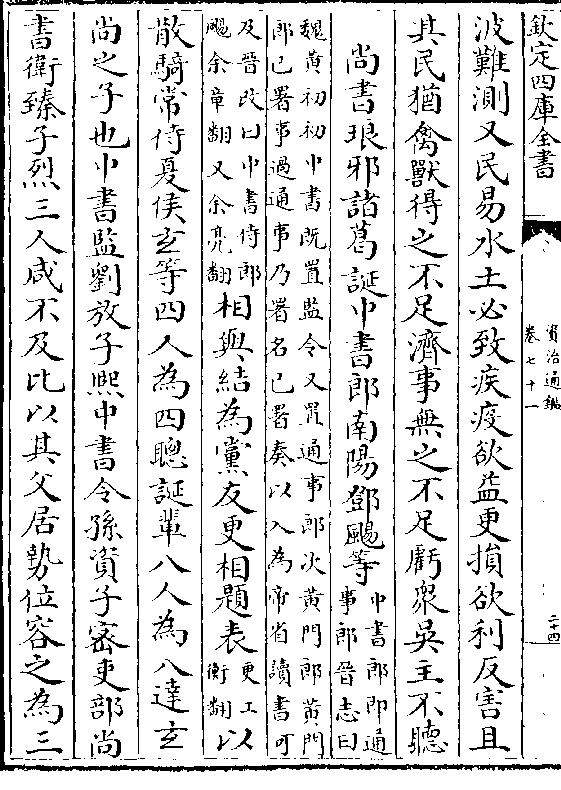 欽定四庫全書
資治通鑑
卷七十一
二十四
波難測又民易水土必致疾疫欲益更損欲利反害且
其民猶禽獸得之不足濟事無之不足虧衆吳主不聽
尚書琅邪諸葛誕中書郎南陽鄧颺等
中書郎即通
事郎晉志曰
魏黄初初中書既置監令又置通事郎次黄門郎黄門
郎已署事過通事乃署名已署奏以入為帝省讀書可
及晉改曰中書侍郎
颺余章翻又余亮翻
相與結為黨友更相題表
更工
衡翻
以
散騎常侍夏侯玄等四人為四聰誕輩八人為八達玄
尚之子也中書監劉放子熙中書令孫資子密吏部尚
書衛臻子烈三人咸不及比以其父居勢位容之為三